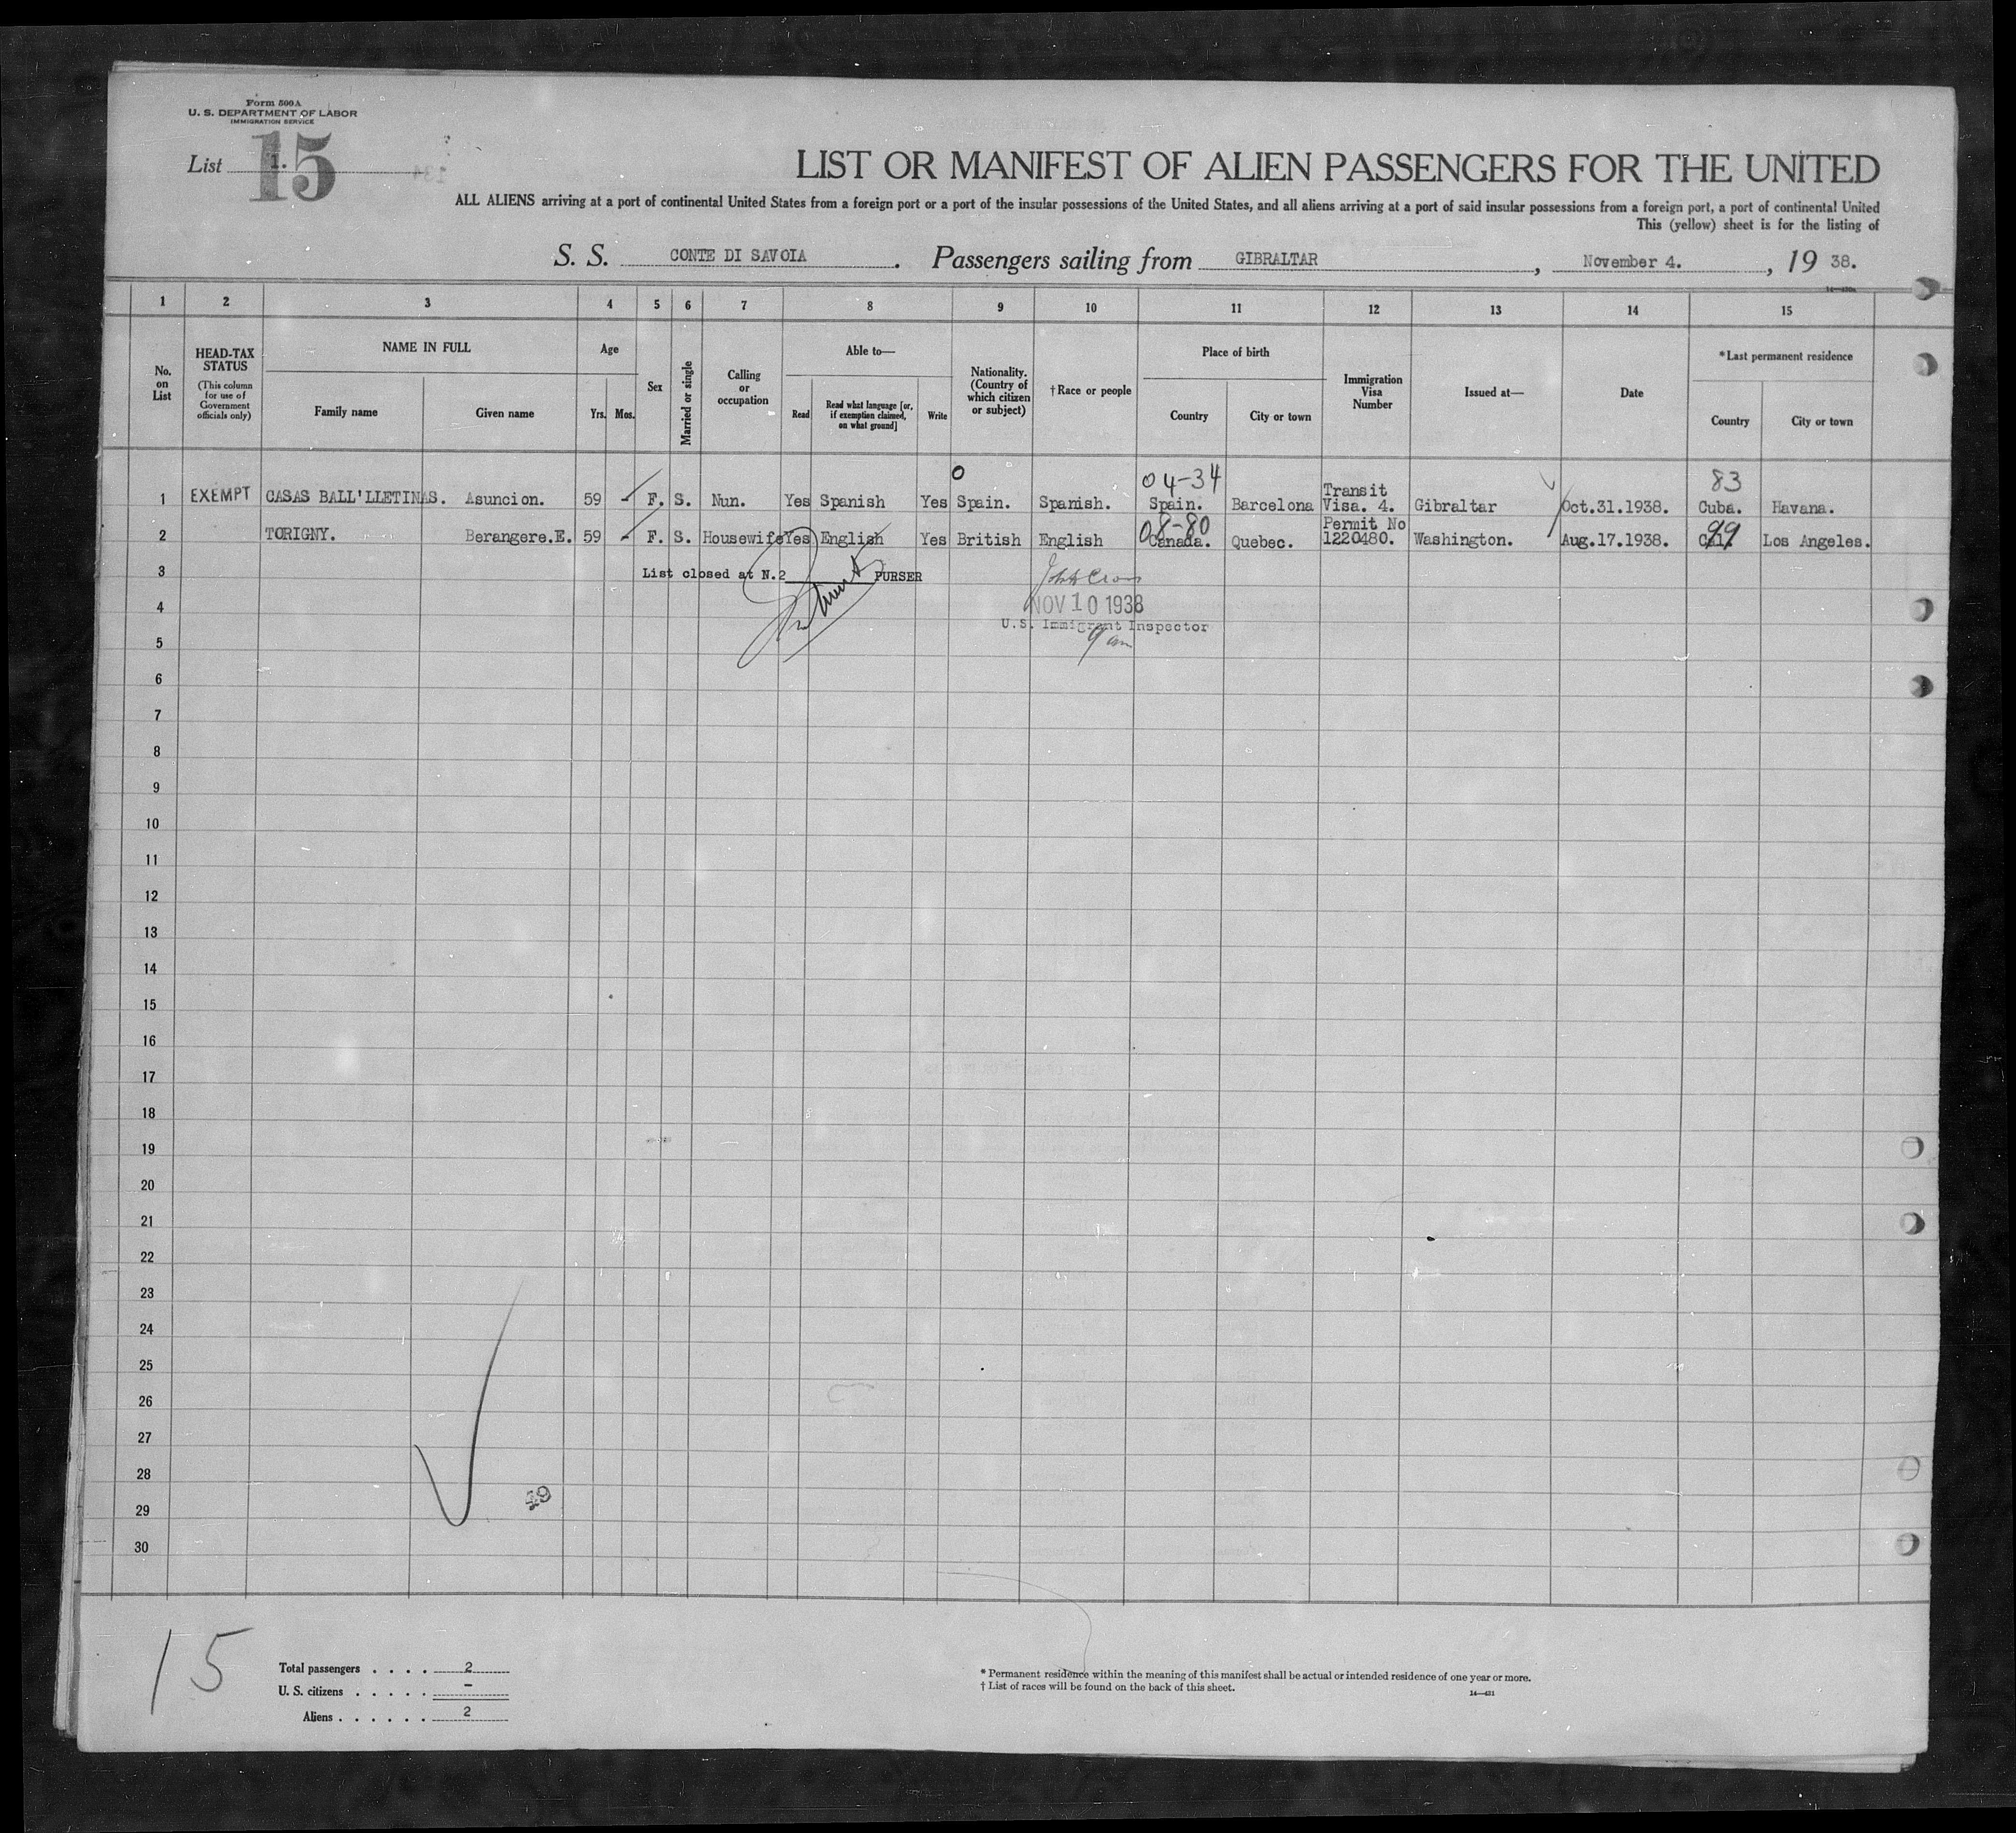 Form 500A
U. S. DEPARTMENT OF LABOR
IMMIGRATION SERVICE
List 1.
15
LIST OR MANIFEST OF ALIEN PASSENGERS FOR THE UNITED
ALL ALIENS arriving at a port of continental United States from a foreign port or a port of the insular possessions of the United States, and all aliens arriving at a port of said insular possessions from a foreign port, a port of continental United
This (yellow) sheet is for the listing of
S. S. CONTE DI SAVOIA. Passengers sailing from GIBRALTAR, November 4., 19 38.
1 2 3 4 5 6 7 8 9 10 11 12 13 14 15
No. on List
HEAD-TAX STATUS
(This column for use of Government officials only)
NAME IN FULL
Family name
Given name
Age
Yrs. Mos.
Sex
Married or single
Calling or occupation
Able to—
Read
Read what language [or, if exemption claimed, on what ground]
Write
Nationality. (Country of which citizen or subject)
†Race or people
Place of birth
Country
City or town
Immigration Visa Number
Issued at—
Date
*Last permanent residence
Country
City or town
0 04-34 83
1 EXEMPT CASAS BALL'LLETINAS. Asuncion. 59 - F. S. Nun. Yes Spanish Yes Spain. Spanish. Spain. Barcelona Transit Visa. 4. Gibraltar Oct.31.1938. Cuba. Havana.
08-80 99
2 TORIGNY. Berangere.E. 59 - F. S. Housewife Yes English Yes British English Canada. Quebec. Permit No 1220480. Washington. Aug.17.1938. Cal. Los Angeles.
3 List closed at N.2 PURSER
4 NOV 10 1938
U.S. Immigrant Inspector
9 am
5
6
7
8
9
10
11
12
13
14
15
16
17
18
19
20
21
22
23
24
25
26
27
28
49
29
30
15
Total passengers . . . . 2
U. S. citizens . . . . . -
Aliens . . . . . . 2
* Permanent residence within the meaning of this manifest shall be actual or intended residence of one year or more.
† List of races will be found on the back of this sheet.
14—431